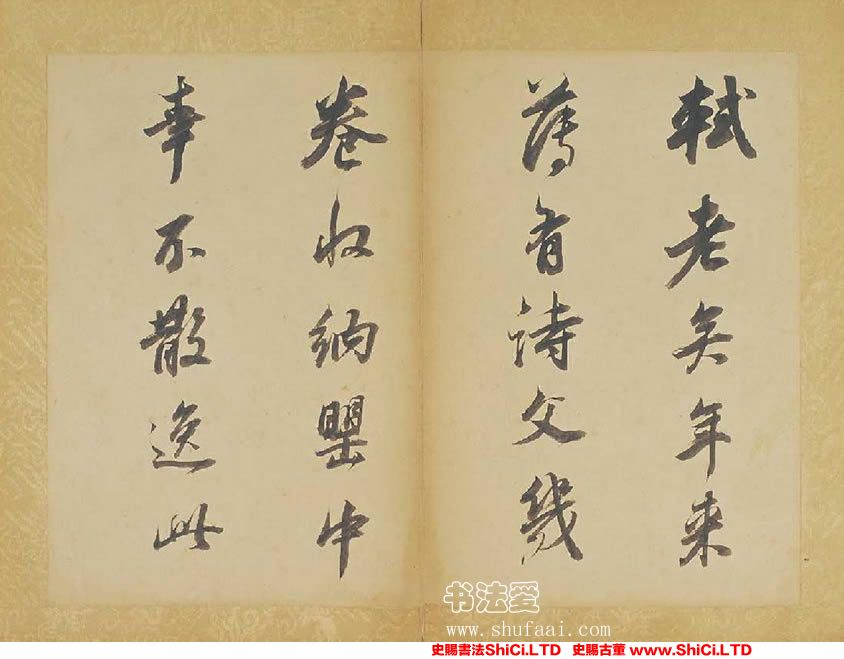 軾老矣年来
薄有詩文幾
卷收納罌中
幸不散逸此
书法爱
www.shufaai.com
史賜書法ShiCi.LTD 史賜古董 www.ShiCi.LTD